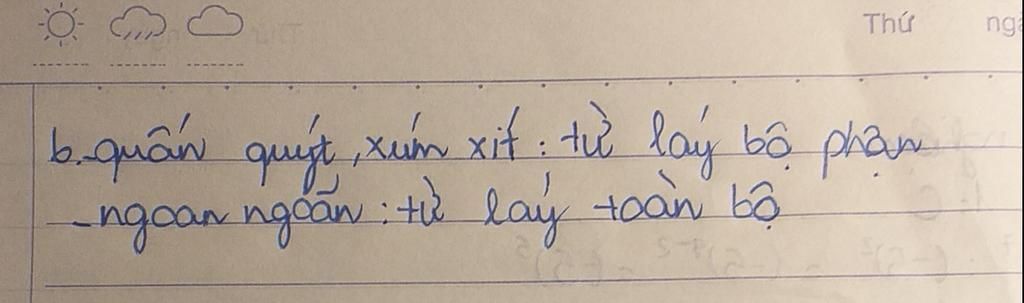 Thứ ngà
b.-quấn quýt, xúm xít : từ láy bộ phận
-ngoan ngoãn : từ láy toàn bộ